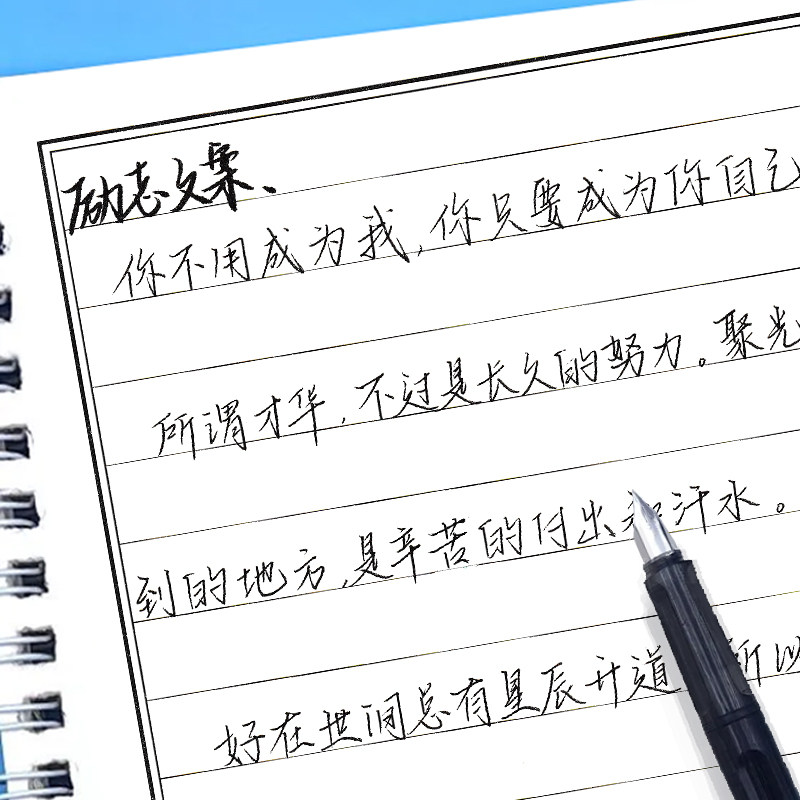 励志文案、
你不用成为我，你只要成为你自己
所谓才华，不过是长久的努力。聚光
到的地方，是辛苦的付出和汗水。
好在世间总有星辰开道 所以